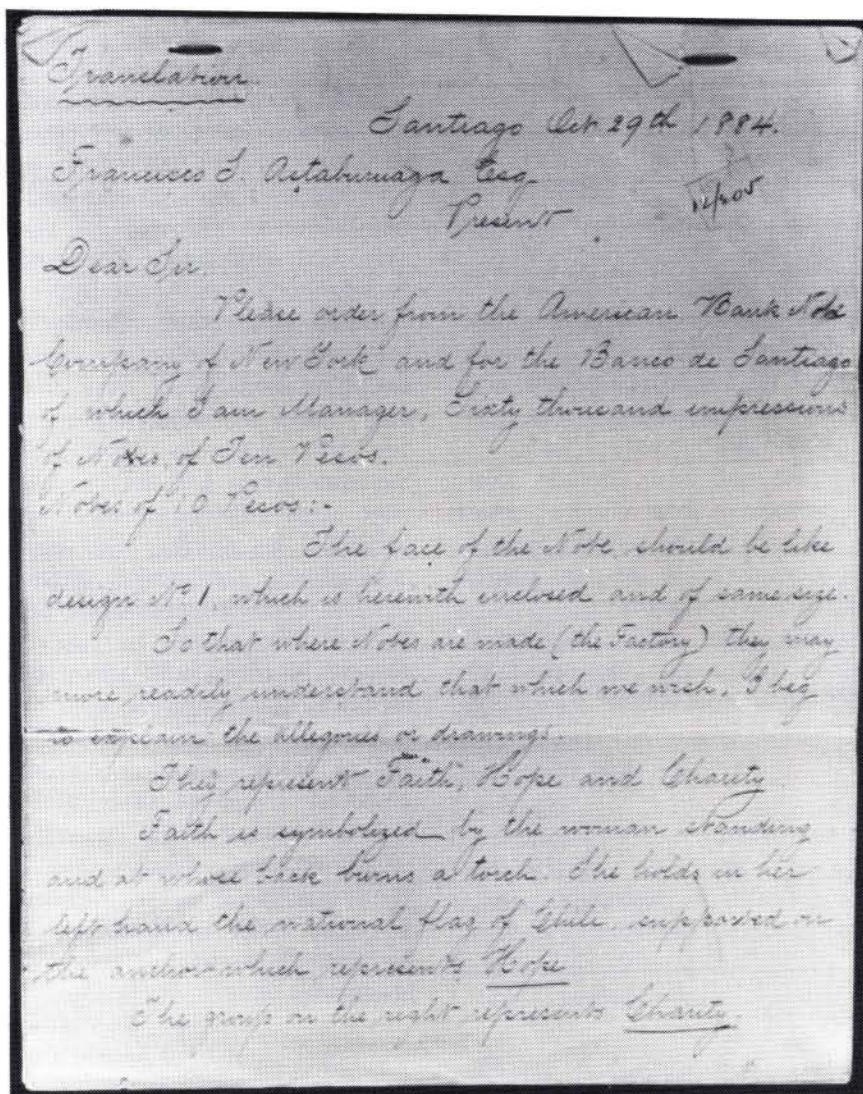 Translation.
Santiago Oct 29th 1884.
Francisco S. Astaburuaga Esq.
Present
12/Nov
Dear Sir.
Please order from the American Bank Note
Company of New York and for the Banco de Santiago
of which I am Manager, Sixty thousand impressions
of Notes, of Ten Pesos.
Notes of 10 Pesos:-
The face of the Note should be like
design No 1, which is herewith inclosed and of same size.
So that where Notes are made (the Factory) they may
more readily understand that which we wish, I beg
to explain the allegories or drawings.
They represent Faith, Hope and Charity.
Faith is symbolized by the woman standing
and at whose back burns a torch. She holds in her
left hand the national flag of Chili, supported on
the anchor which represents Hope
The group on the right represents Charity.